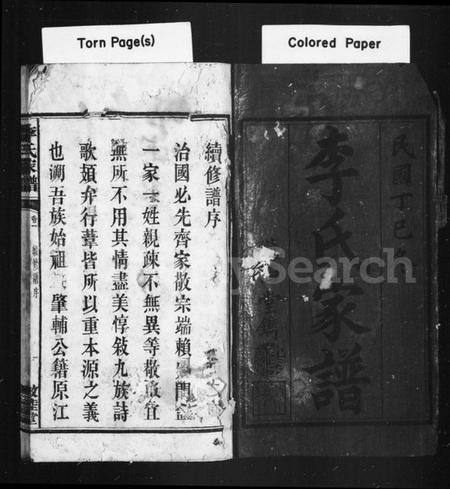 Torn Page(s)
Colored Paper
民國丁巳
李氏家譜
續修譜序
治國必先齊家散宗端賴門
一家一姓親疎不無異等敬宜
無所不用其情盡美惇敍九族詩
歌頍弁行葦皆所以重本源之義
也溯吾族始祖肇輔公籍原江
李氏家譜
卷一
續修譜序
敦
堂
MySearch